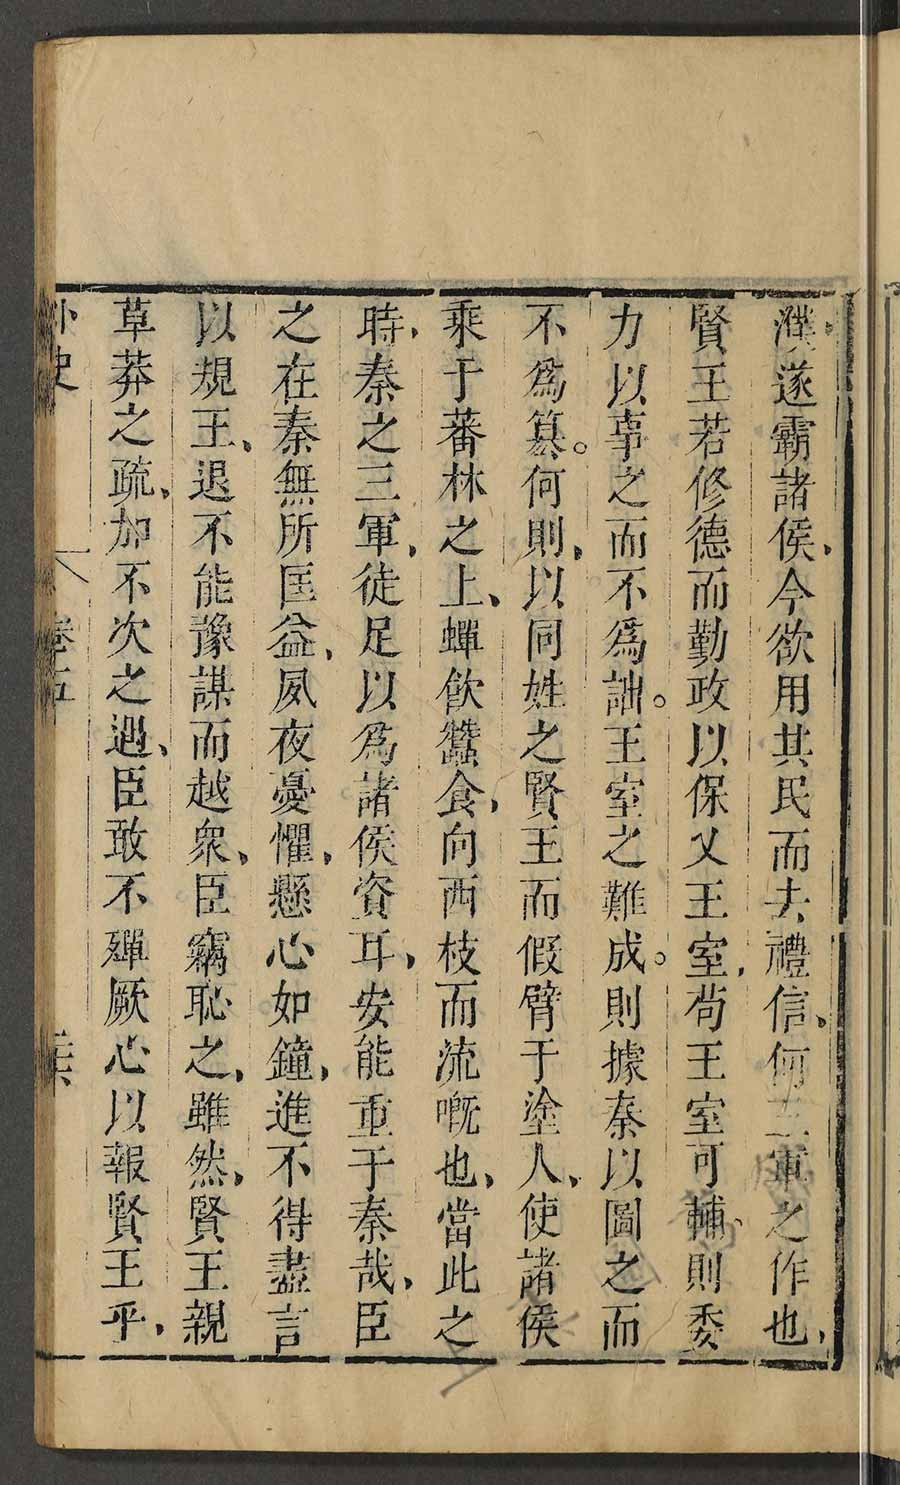 濮、遂霸諸侯、今欲用其民而去禮信、何三軍之作也、
賢王若修德而勤政以保乂王室、茍王室可輔、則委
力以事之而不爲詘。王室之難成。則據秦以圖之而
不爲篡。何則、以同姓之賢王而假臂于塗人、使諸侯
乘于蕃林之上、蟬飲蠶食、向西枝而流嘅也、當此之
時、秦之三軍、徒足以爲諸侯資耳、安能重于秦哉、臣
之在秦無所匡益、夙夜憂懼、懸心如鐘、進不得盡言
以規王、退不能豫謀而越衆、臣竊恥之、雖然、賢王親
草莽之疏、加不次之遇、臣敢不殫厥心以報賢王乎、
外史
卷五